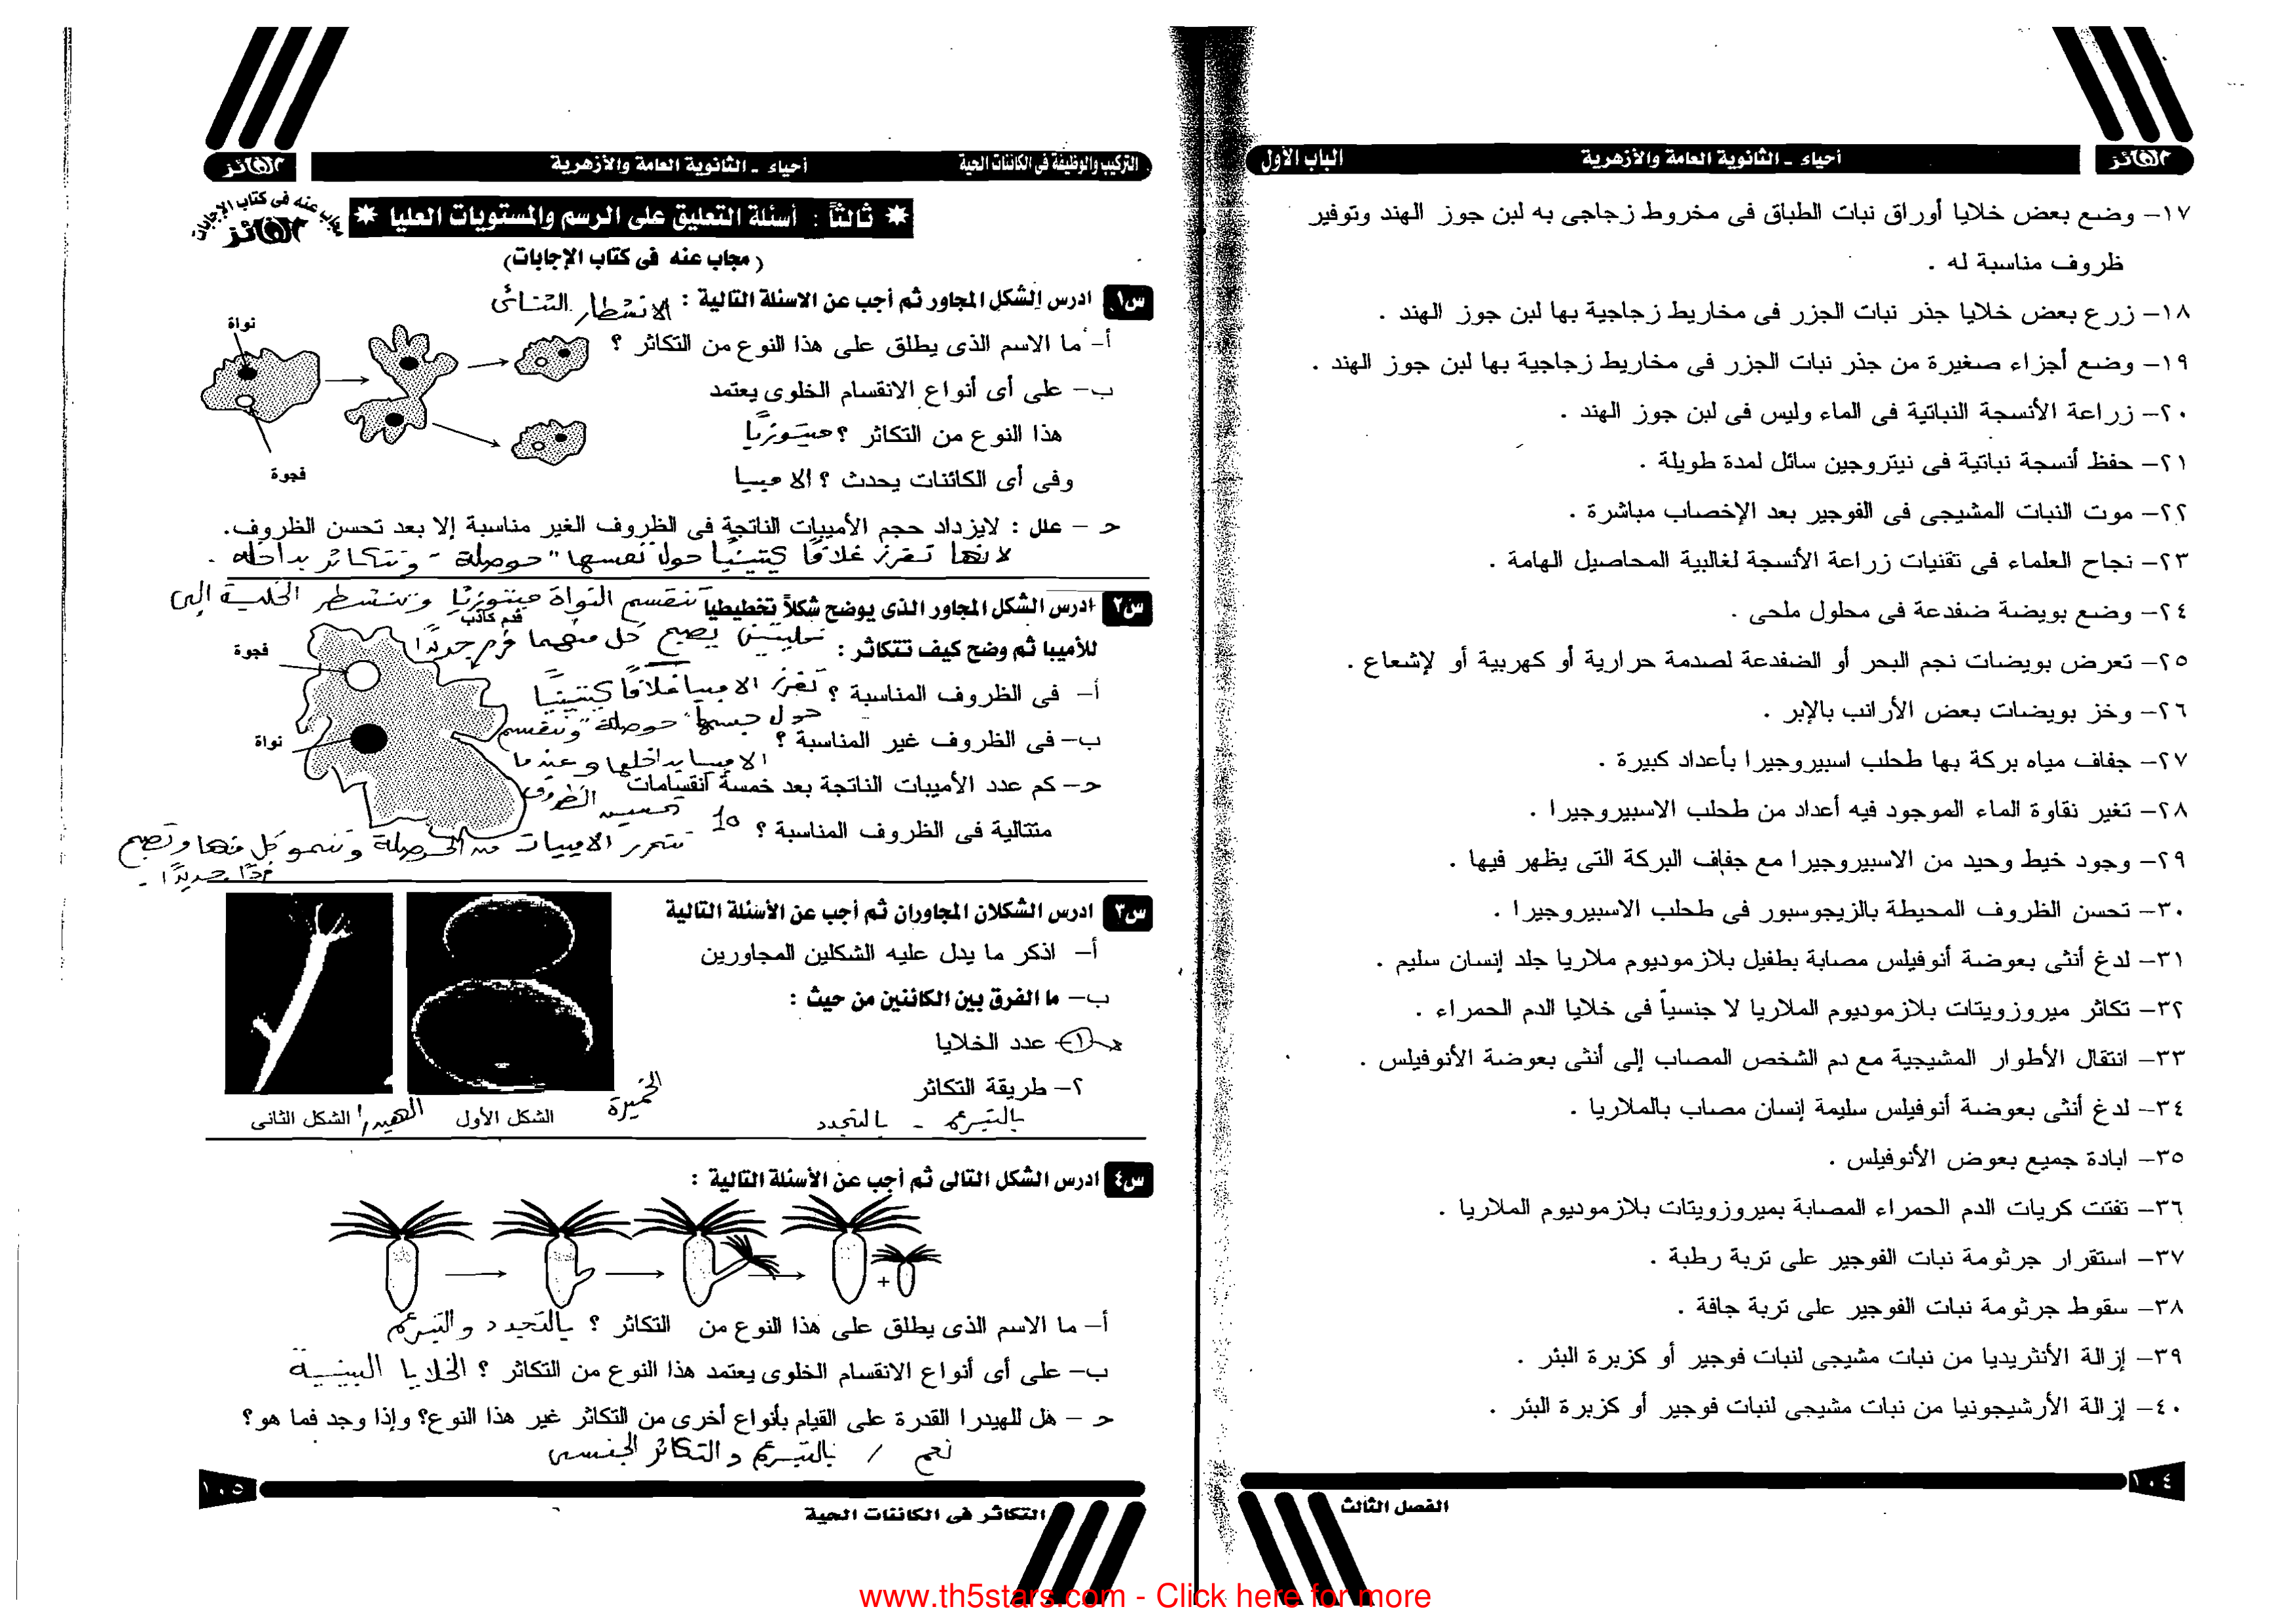 الباب الأول
أحياء ـ الثانوية العامة والأزهرية
الفائز
١٧– وضع بعض خلايا أوراق نبات الطباق فى مخروط زجاجى به لبن جوز الهند وتوفير
ظروف مناسبة له .
١٨– زرع بعض خلايا جذر نبات الجزر فى مخاريط زجاجية بها لبن جوز الهند .
١٩– وضع أجزاء صغيرة من جذر نبات الجزر فى مخاريط زجاجية بها لبن جوز الهند .
٢٠– زراعة الأنسجة النباتية فى الماء وليس فى لبن جوز الهند .
٢١– حفظ أنسجة نباتية فى نيتروجين سائل لمدة طويلة .
٢٢– موت النبات المشيجى فى الفوجير بعد الإخصاب مباشرة .
٢٣– نجاح العلماء فى تقنيات زراعة الأنسجة لغالبية المحاصيل الهامة .
٢٤– وضع بويضة ضفدعة فى محلول ملحى .
٢٥– تعرض بويضات نجم البحر أو الضفدعة لصدمة حرارية أو كهربية أو لإشعاع .
٢٦– وخز بويضات بعض الأرانب بالإبر .
٢٧– جفاف مياه بركة بها طحلب اسبيروجيرا بأعداد كبيرة .
٢٨– تغير نقاوة الماء الموجود فيه أعداد من طحلب الاسبيروجيرا .
٢٩– وجود خيط وحيد من الاسبيروجيرا مع جفاف البركة التى يظهر فيها .
٣٠– تحسن الظروف المحيطة بالزيجوسبور فى طحلب الاسبيروجيرا .
٣١– لدغ أنثى بعوضة أنوفيلس مصابة بطفيل بلازموديوم ملاريا جلد إنسان سليم .
٣٢– تكاثر ميروزويتات بلازموديوم الملاريا لا جنسياً فى خلايا الدم الحمراء .
٣٣– انتقال الأطوار المشيجية مع دم الشخص المصاب إلى أنثى بعوضة الأنوفيلس .
٣٤– لدغ أنثى بعوضة أنوفيلس سليمة إنسان مصاب بالملاريا .
٣٥– ابادة جميع بعوض الأنوفيلس .
٣٦– تفتت كريات الدم الحمراء المصابة بميروزويتات بلازموديوم الملاريا .
٣٧– استقرار جرثومة نبات الفوجير على تربة رطبة .
٣٨– سقوط جرثومة نبات الفوجير على تربة جافة .
٣٩– إزالة الأنثريديا من نبات مشيجى لنبات فوجير أو كزبرة البئر .
٤٠– إزالة الأرشيجونيا من نبات مشيجى لنبات فوجير أو كزبرة البئر .
١٠٤
الفصل الثالث
التركيب والوظيفة فى الكائنات الحية
أحياء ـ الثانوية العامة والأزهرية
الفائز
* ثالثاً : أسئلة التعليق على الرسم والمستويات العليا *
مجاب عنه فى كتاب الإجابات
الفائز
( مجاب عنه فى كتاب الإجابات)
س١ ادرس الشكل المجاور ثم أجب عن الاسئلة التالية : الانشطار الثنائى
أ– ما الاسم الذى يطلق على هذا النوع من التكاثر ؟
ب– على أى أنواع الانقسام الخلوى يعتمد
هذا النوع من التكاثر ؟ ميتوزيًا
وفى أى الكائنات يحدث ؟ الاميبا
نواة
فجوة
حـ – علل : لايزداد حجم الأميبات الناتجة فى الظروف الغير مناسبة إلا بعد تحسن الظروف.
لانها تفرز غلافًا كيتينيًا حول نفسها "حوصلة" وتتكاثر بداخله .
س٢ ادرس الشكل المجاور الذى يوضح شكلاً تخطيطياً تنقسم النواة ميتوزيًا وتنشطر الخلية إلى
للأميبا ثم وضح كيف تتكاثر : خليتين يصبح كل منهما فرم جديدًا
قدم كاذب
فجوة
نواة
أ– فى الظروف المناسبة ؟ تفرز الاميبا غلافًا كيتينيًا
حول جسمها "حوصلة" وتنقسم
ب– فى الظروف غير المناسبة ؟
الاميبا بداخلها وعندما
حـ– كم عدد الأميبات الناتجة بعد خمسة انقسامات
تحسين الظروف
متتالية فى الظروف المناسبة ؟ 10
تتحرر الاميبات من الحوصلة وتنمو كل منها وتصبح
فردًا جديدًا .
س٣ ادرس الشكلان المجاوران ثم أجب عن الأسئلة التالية
أ– اذكر ما يدل عليه الشكلين المجاورين
ب– ما الفرق بين الكائنين من حيث :
١– عدد الخلايا
٢– طريقة التكاثر
بالتبرعم - بالتجدد
الخميرة
الشكل الأول
الهيدرا
الشكل الثانى
س٤ ادرس الشكل التالى ثم أجب عن الأسئلة التالية :
+
أ– ما الاسم الذى يطلق على هذا النوع من التكاثر ؟ بالتجدد والتبرعم
ب– على أى أنواع الانقسام الخلوى يعتمد هذا النوع من التكاثر ؟ الخلايا البينية
حـ – هل للهيدرا القدرة على القيام بأنواع أخرى من التكاثر غير هذا النوع؟ وإذا وجد فما هو؟
نعم / بالتبرعم والتكاثر الجنسى
١٠٥
التكاثر فى الكائنات الحية
www.th5stars.com - Click here for more